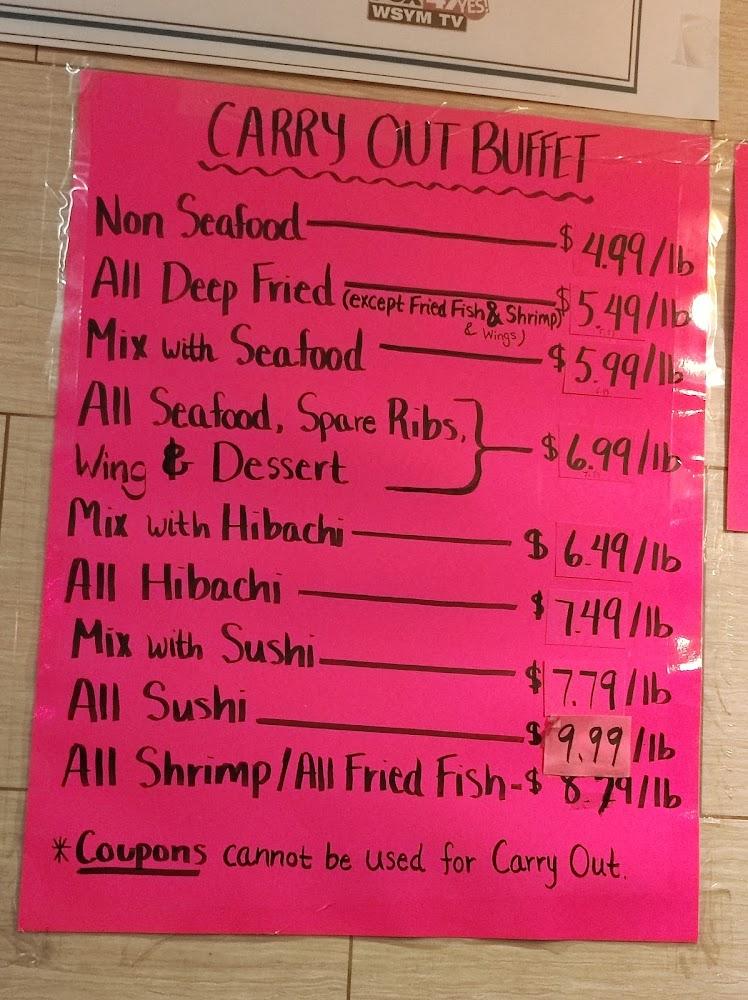 47 YES!
WSYM TV
CARRY OUT BUFFET
Non Seafood $4.99/lb
All Deep Fried (except Fried Fish & Shrimp & Wings) $5.49/lb
Mix with Seafood $5.99/lb
All Seafood, Spare Ribs,
Wing & Dessert } $6.99/lb
Mix with Hibachi $6.49/lb
All Hibachi $7.49/lb
Mix with Sushi $7.79/lb
All Sushi $9.99/lb
All Shrimp/All Fried Fish-$8.79/lb
*Coupons cannot be used for Carry Out.